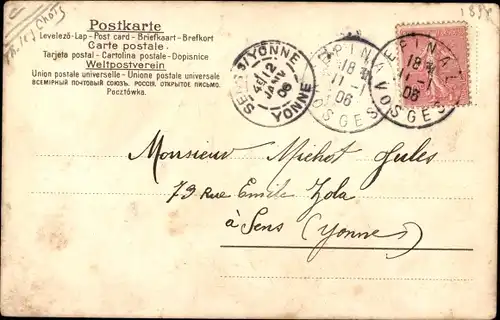 Postkarte
Levelező-Lap - Post card - Briefkaart - Brefkort
Carte postale
Tarjeta postal - Cartolina postale - Dopisnice
Weltpostverein
Union postale universelle - Unione postale universale
ВСЕМІРНЫЙ ПОЧТОВЫЙ СОЮЗ. РОССІЯ. ОТКРЫТОЕ ПИСЬМО.
Pocztówka.
SENS S/YONNE
12
JANV
06
YONNE
EPINAL
18
11-1
06
VOSGES
EPINAL
18
11-1
06
VOSGES
Monsieur Michot Jules
73 Rue Emile Zola
à Sens (Yonne)